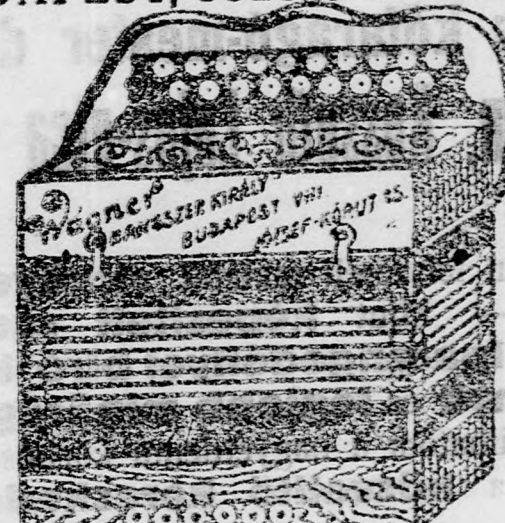 Wagner
HANGSZER KIRÁLY
BUDAPEST VIII.
JÓZSEF-KÖRUT 15.